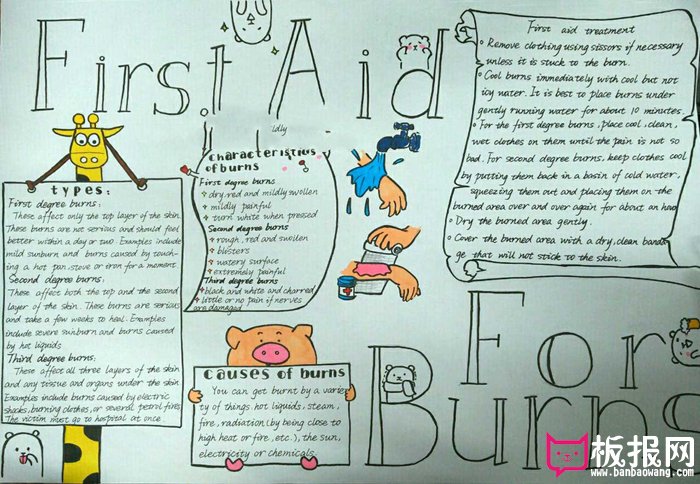 First Aid
For
Burns
types:
First degree burns:
These affect only the top layer of the skin.
These burns are not serious and should feel
better within a day or two. Examples include
mild sunburn and burns caused by touch-
ing a hot pan, stove or iron for a moment.
Second degree burns:
These affect both the top and the second
layer of the skin. These burns are serious
and take a few weeks to heal. Examples
include severe sunburn and burns caused
by hot liquids
Third degree burns:
These affect all three layers of the skin
and any tissue and organs under the skin.
Examples include burns caused by electric
shocks, burning clothes, or petrol fires
The victim must go to hospital at once
ldly
Characteristics
of burns
First degree burns
dry, red and mildly swollen
mildly painful
turn white when pressed
Second degree burns
rough, red and swollen
blisters
watery surface
extremely painful
Third degree burns
black and white and charred
little or no pain if nerves
are damaged
Causes of burns
You can get burnt by a varie
ty of things hot liquids, steam,
fire, radiation (by being close to
high heat or fire, etc.), the sun,
electricity or chemicals
First aid treatment
Remove clothing using sissors if necessary
unless it is stuck to the burn.
Cool burns immediately with cool but not
icy water. It is best to place burns under
gently running water for about 10 minutes.
For the first degree burns, place cool, clean,
wet clothes on them until the pain is not so
bad. For second degree burns, keep clothes cool
by putting them back in a basin of cold water,
squeezing them out and placing them on the
burned area over and over again for about an
Dry the burned area gently.
Cover the burned area with a dry, clean banda
ge that will not stick to the skin.
板报网
www.banbaowang.com